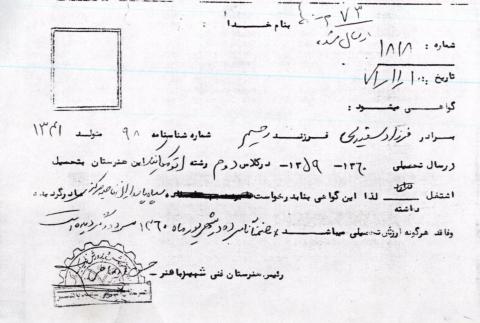 بنام خدا
۷۳
ارسال شد
شماره : ۱۸۱۸
تاریخ :
گواهی میشود :
برادر فرزاد فرزند رحیم شماره شناسنامه ۹۸ متولد ۱۳۴۱
درسال تحصیلی ۱۳۶۰ - ۱۳۵۹ - در کلاس دوم رشته اتومکانیک این هنرستان بتحصیل
اشتغال داشته لذا این گواهی بنابدرخواست صادرگردیده
و فاقد هرگونه ارزش تحصیلی میباشد ضمنا نامبرده در شهریور ماه ۱۳۶۰ مردود گردیده است
رئیس هنرستان فنی شهید باهنر